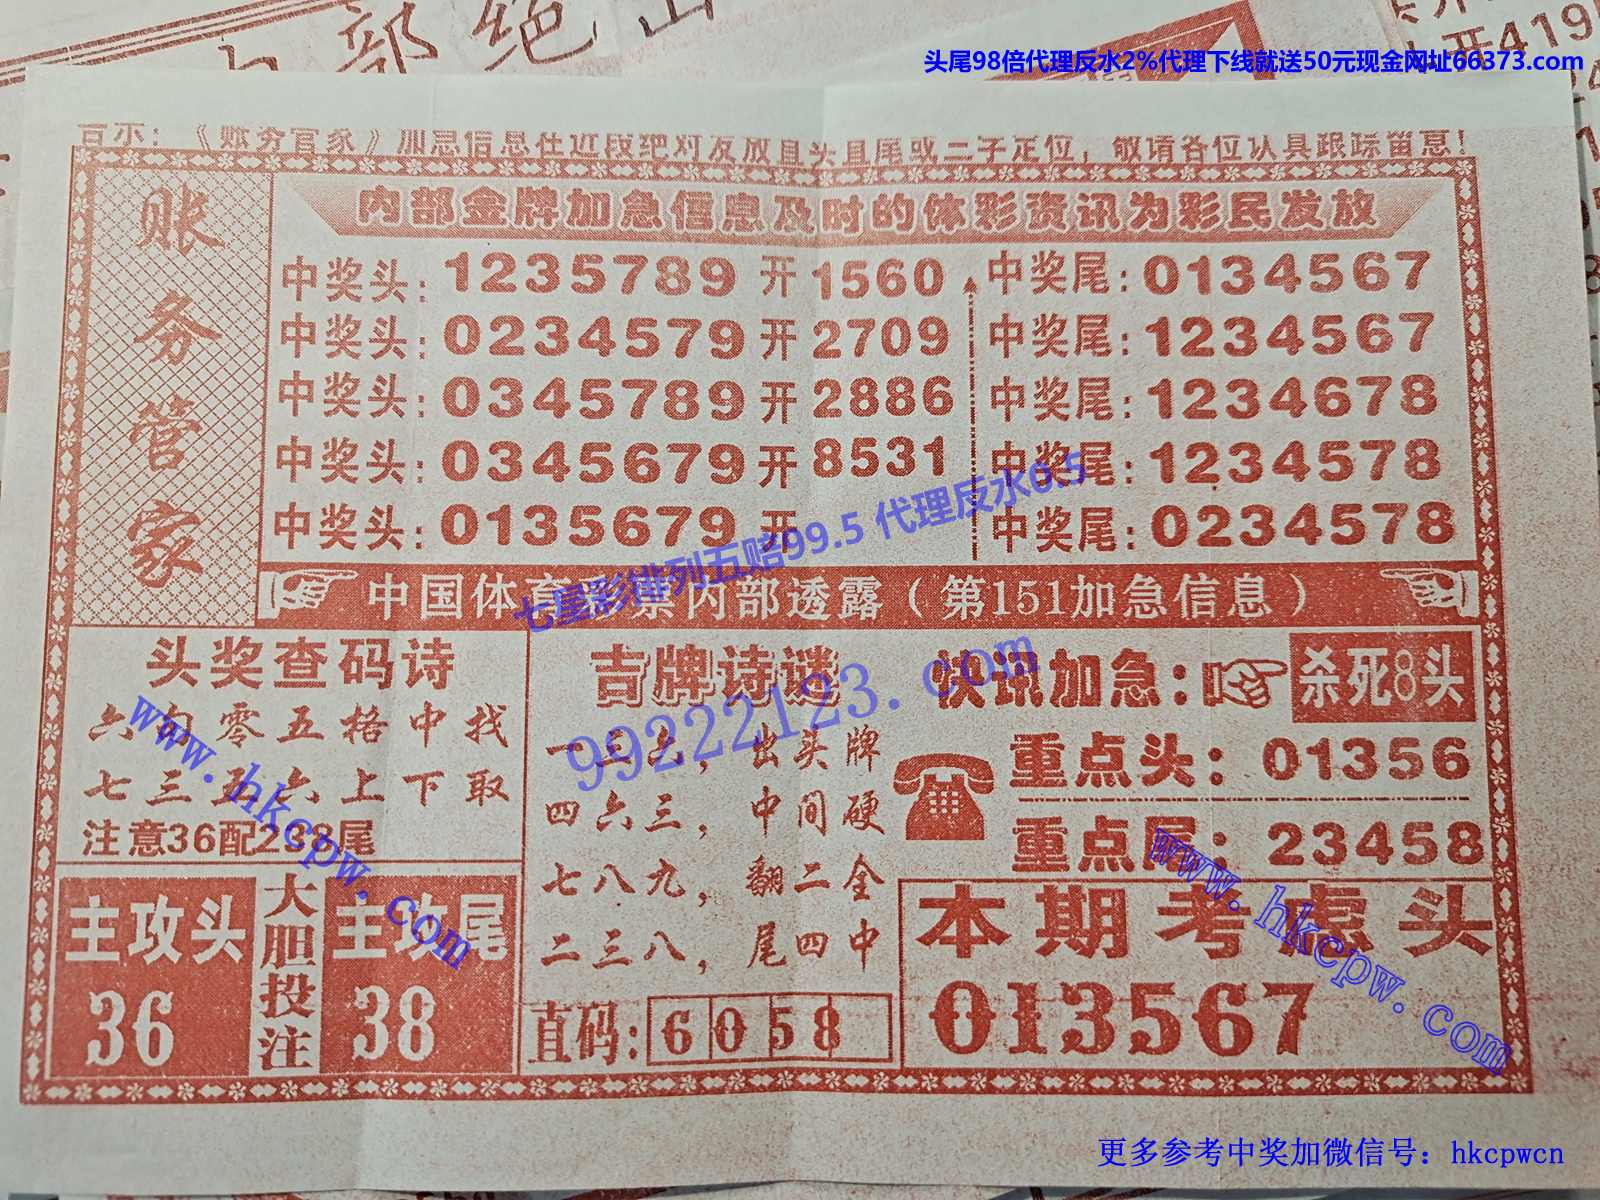 部绝
开419
头尾98倍代理反水2%代理下线就送50元现金网址66373.com
告示：《账务管家》加急信息在近段绝对发放直头直尾或二字定位，敬请各位认真跟踪留意！
账务管家
内部金牌加急信息及时的体彩资讯为彩民发放
中奖头：1235789 开 1560 中奖尾：0134567
中奖头：0234579 开 2709 中奖尾：1234567
中奖头：0345789 开 2886 中奖尾：1234678
中奖头：0345679 开 8531 中奖尾：1234578
中奖头：0135679 开 中奖尾：0234578
七星彩排列五赔99.5 代理反水0.5
中国体育彩票内部透露（第151加急信息）
头奖查码诗
六句零五格中找
七三五六上下取
注意36配238尾
主攻头
36
大胆投注
主攻尾
38
吉牌诗谜
一三六，出头牌
四六三，中间硬
七八九，翻二金
二三八，尾四中
直码：6058
快讯加急：杀死8头
重点头：01356
重点尾：23458
本期考虑头
013567
99222123.com
www.hkcpw.com
www.hkcpw.com
更多参考中奖加微信号：hkcpwcn